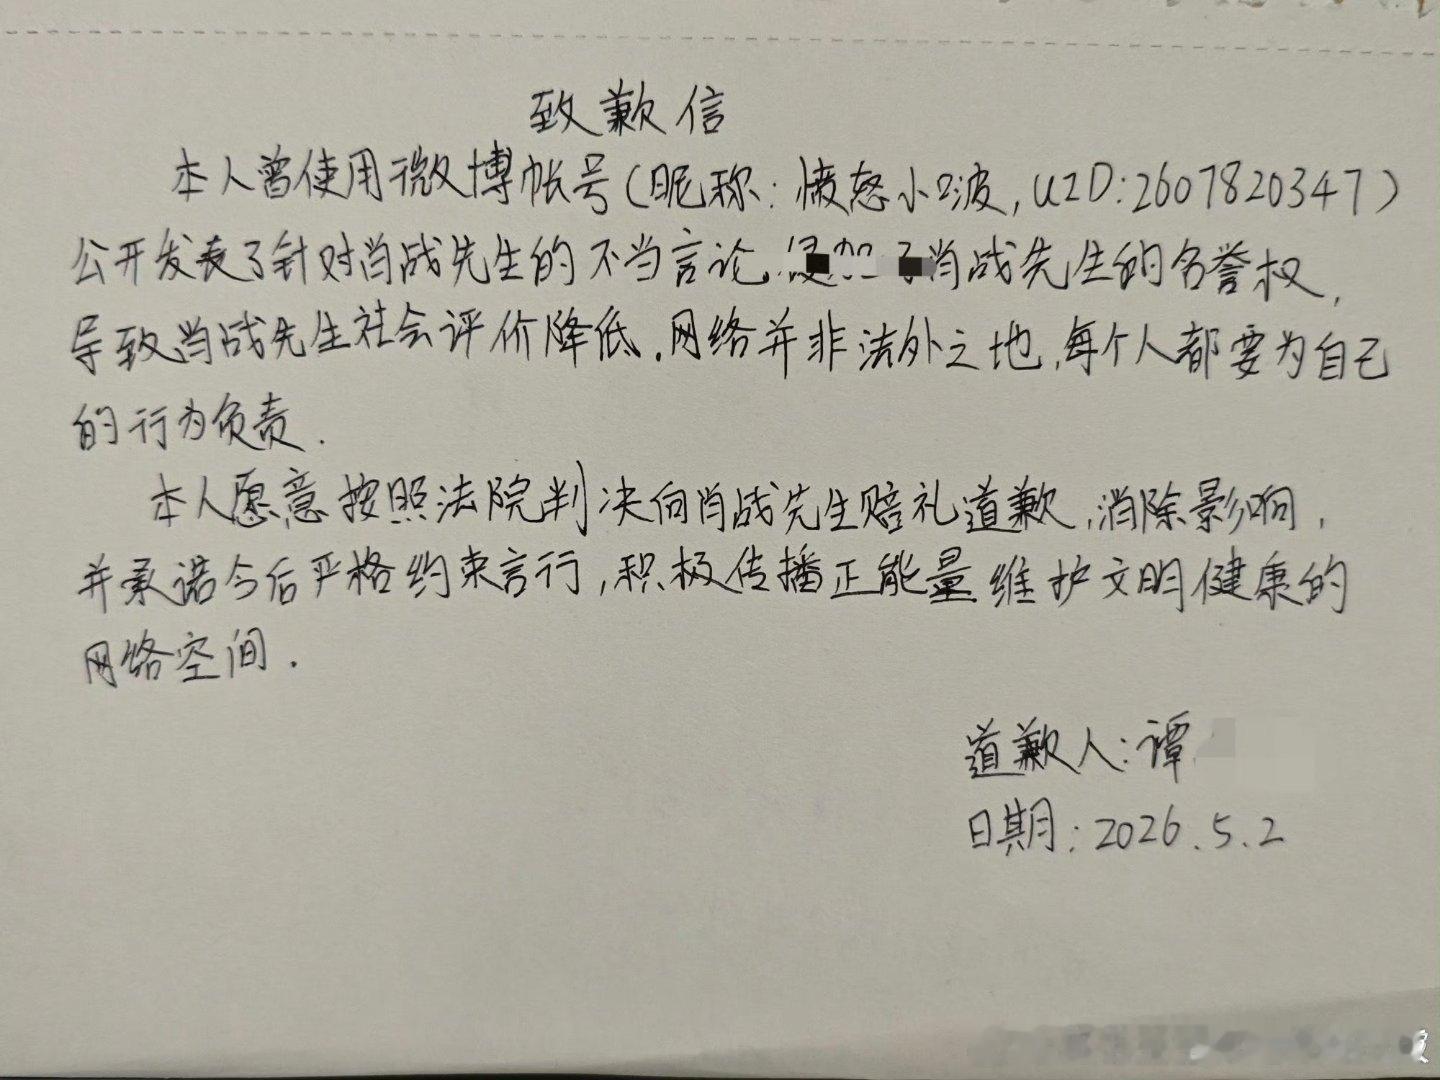 致歉信
本人曾使用微博帐号(昵称:愤怒小口波,UID:2607820347)
公开发表了针对肖战先生的不当言论,侵犯了肖战先生的名誉权,
导致肖战先生社会评价降低.网络并非法外之地,每个人都要为自己
的行为负责.
本人愿意按照法院判决向肖战先生赔礼道歉,消除影响,
并承诺今后严格约束言行,积极传播正能量维护文明健康的
网络空间.
道歉人:谭
日期:2026.5.2